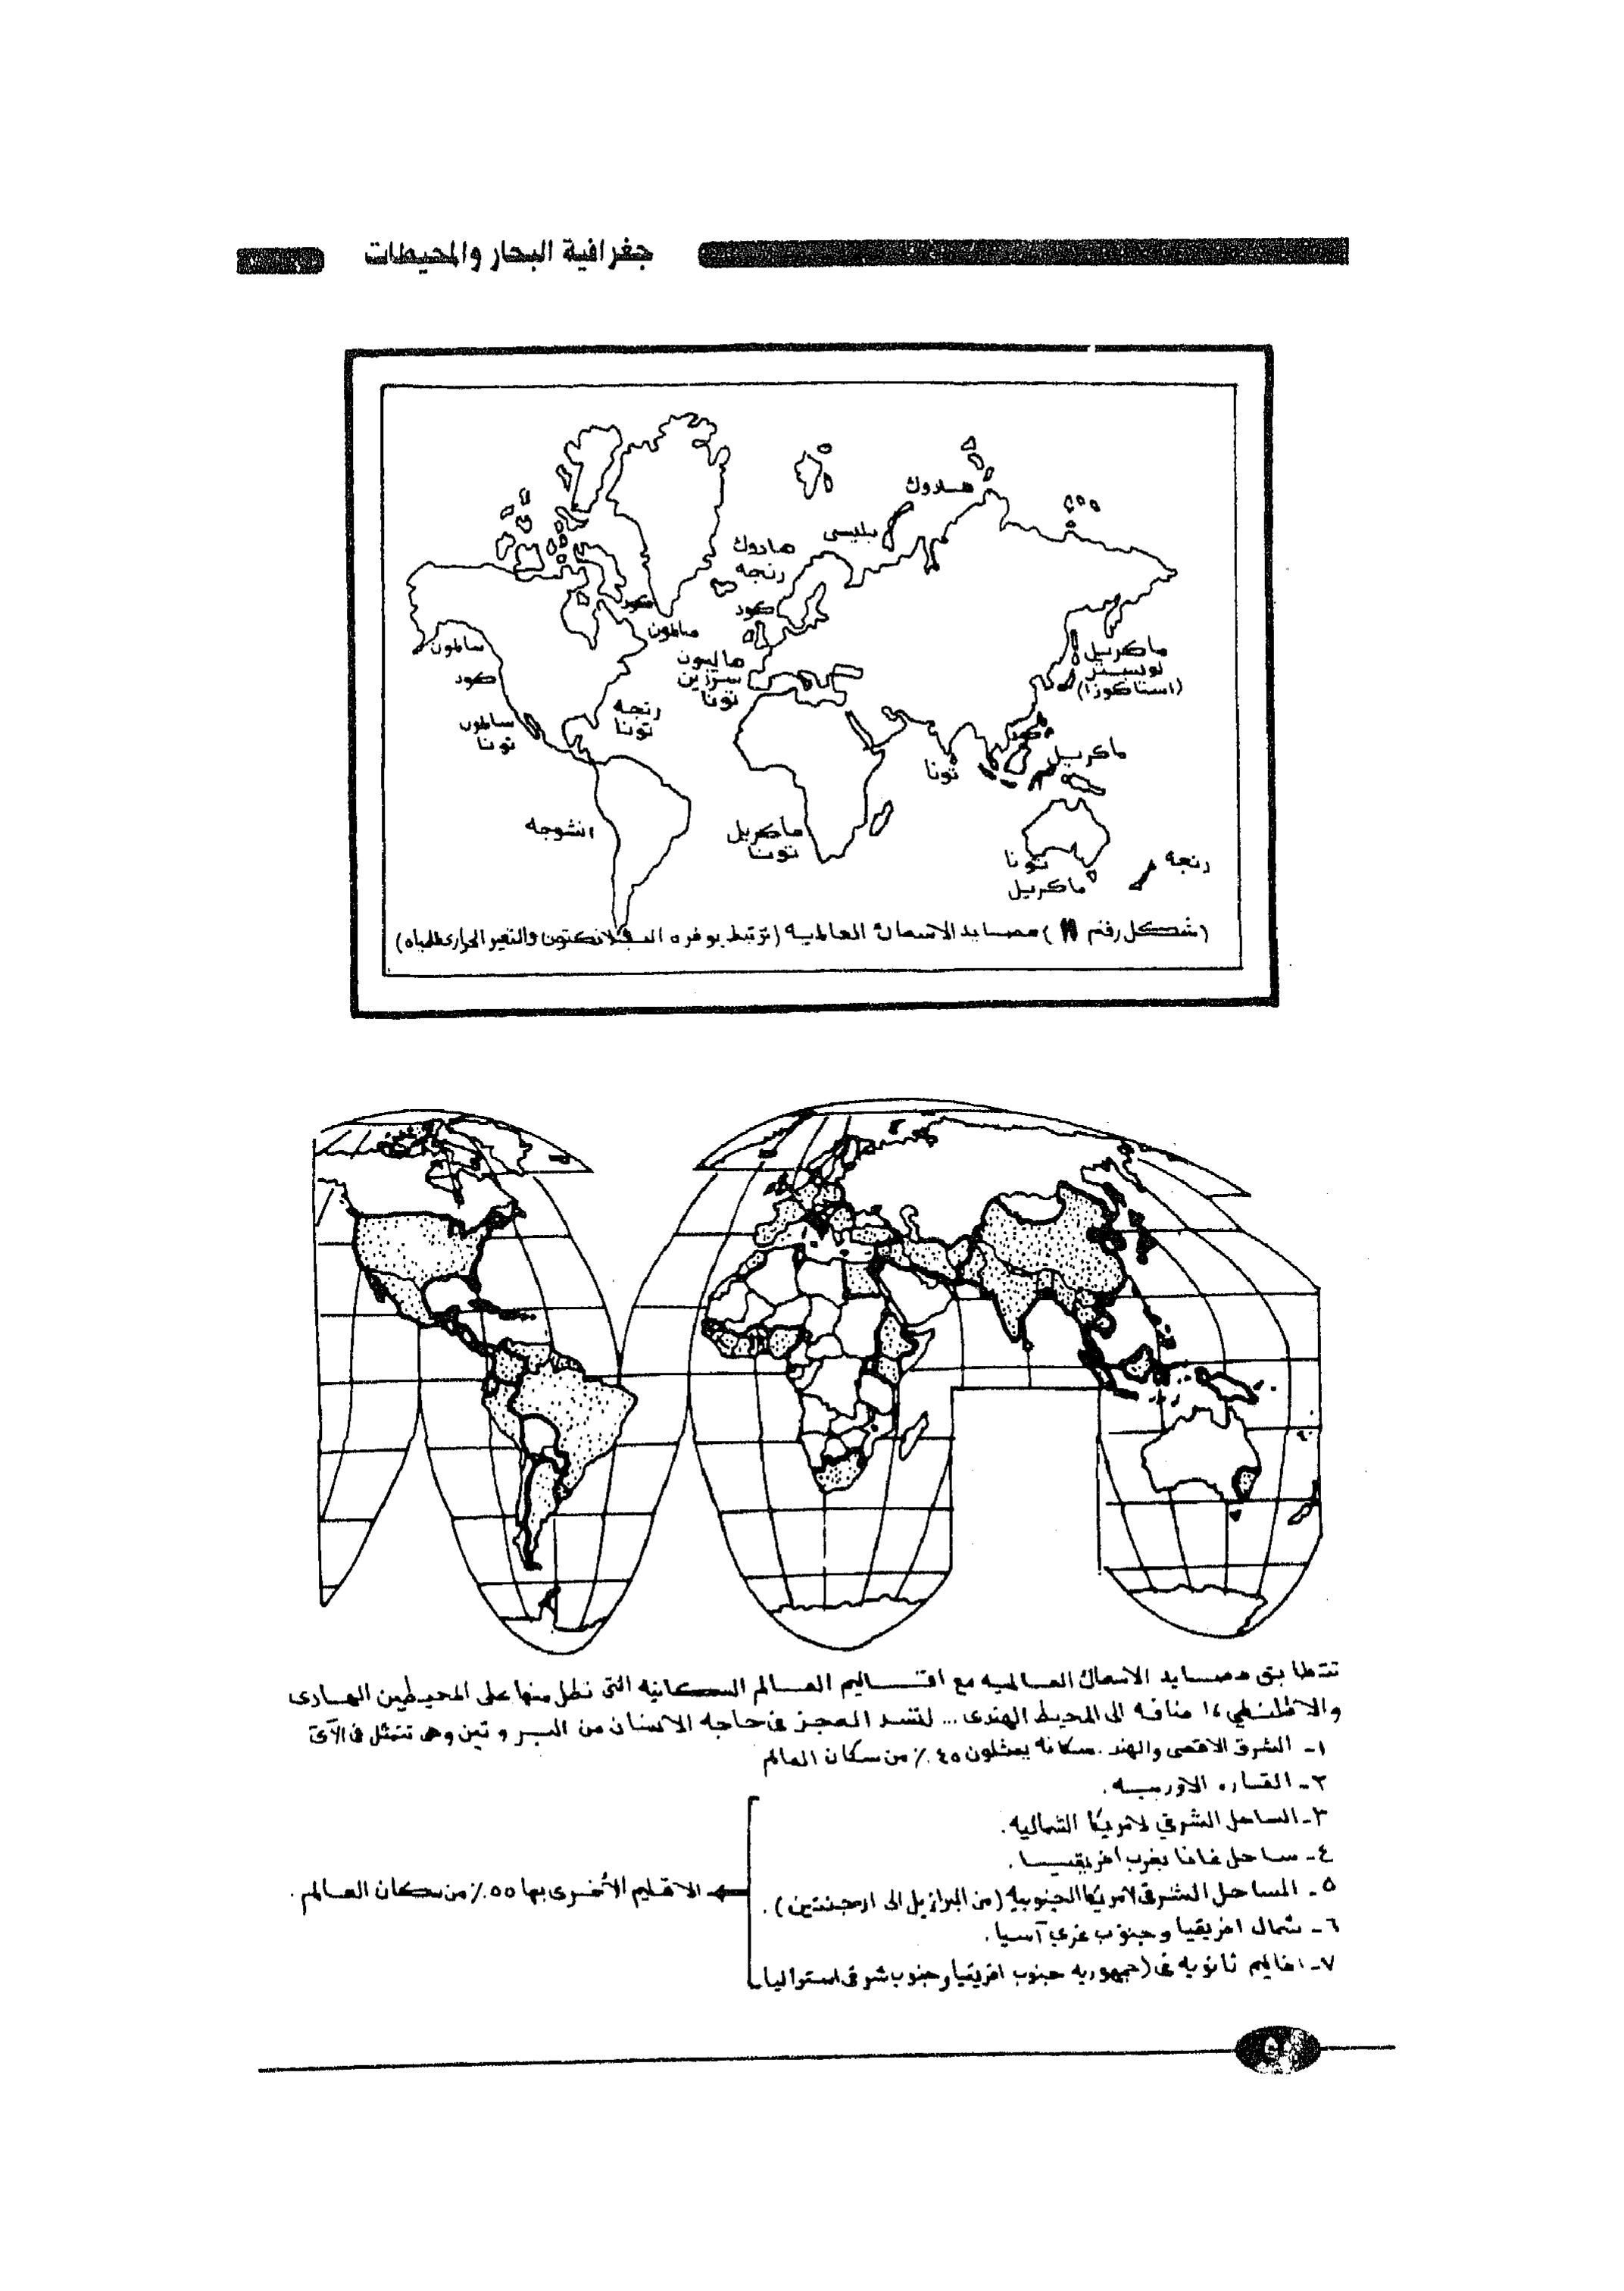 جغرافية البحار والمحيطات
هـدوك
بليسى
هادوك
رنجه
كود
كود
سالمون
هاليبون
سردين
تونا
سالمون
كود
سالمون
تونا
رنجه
تونا
ماكريل
لوبستر
(استاكوزا)
كود
ماكريل
تونا
انشوجه
ماكريل
تونا
تونا
ماكريل
رنجه
(شكل رقم ١١) مصايد الاسماك العالميه (ترتبط بوفره البلانكتون والتغير الحرارى للمياه)
تتطابق مصايد الاسماك العالميه مع اقاليم العالم السكانيه التى تطل منها على المحيطين الهادى
والاطلنطى، اضافه الى المحيط الهندى ... لتسد العجز فى حاجه الانسان من البروتين وهى تتمثل فى الآتى
١- الشرق الاقصى والهند . سكانه يمثلون ٤٥٪ من سكان العالم
٢- القاره الاوربيه .
٣- الساحل الشرقي لامريكا الشماليه .
٤- ساحل غانا بغرب افريقيا .
٥- الساحل الشرقى لامريكا الجنوبيه (من البرازيل الى ارجنتين) .
٦- شمال افريقيا وجنوب غربي آسيا .
٧- اقاليم ثانويه فى (جمهوريه جنوب افريقيا وجنوب شرقى استراليا
الاقليم الأخرى بها ٥٥٪ من سكان العالم .